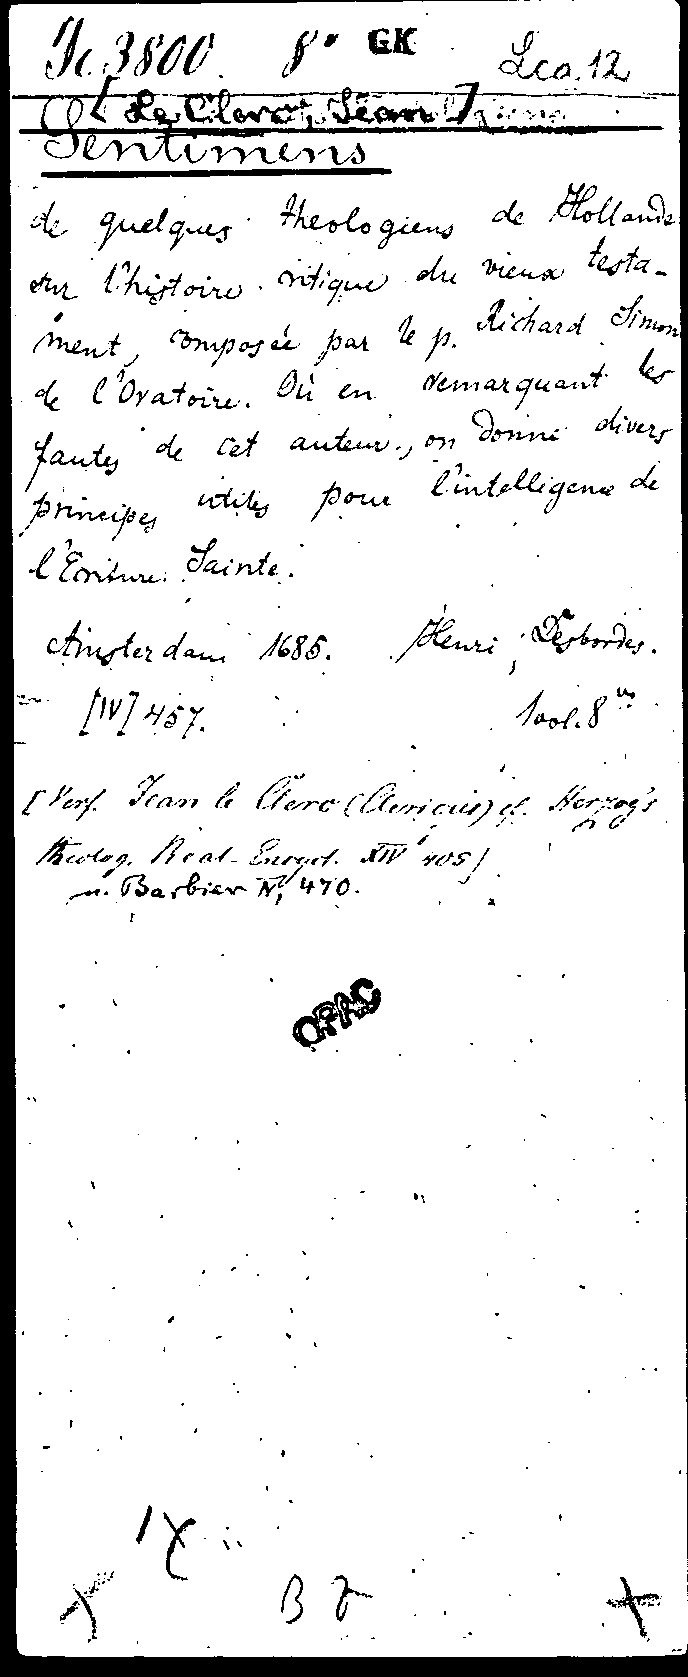 Jc. 3800. 8° GK Lca. 12
[Le Clerc, Jean]
Sentimens
de quelques theologiens de Hollande
sur l'histoire critique du vieux testa-
ment, composée par le p. Richard Simon
de l'Oratoire. Où en remarquant les
fautes de cet auteur, on donne divers
principes utiles pour l'intelligence de
l'Ecriture Sainte.
Amsterdam 1685. Henri Desbordes.
[IV] 457. 1 vol. 8vo
[Verf. Jean le Clerc (Clericus) cf. Herzog's
theolog. Real-Encycl. XIV 405]
u. Barbier IV, 470.
OPAC